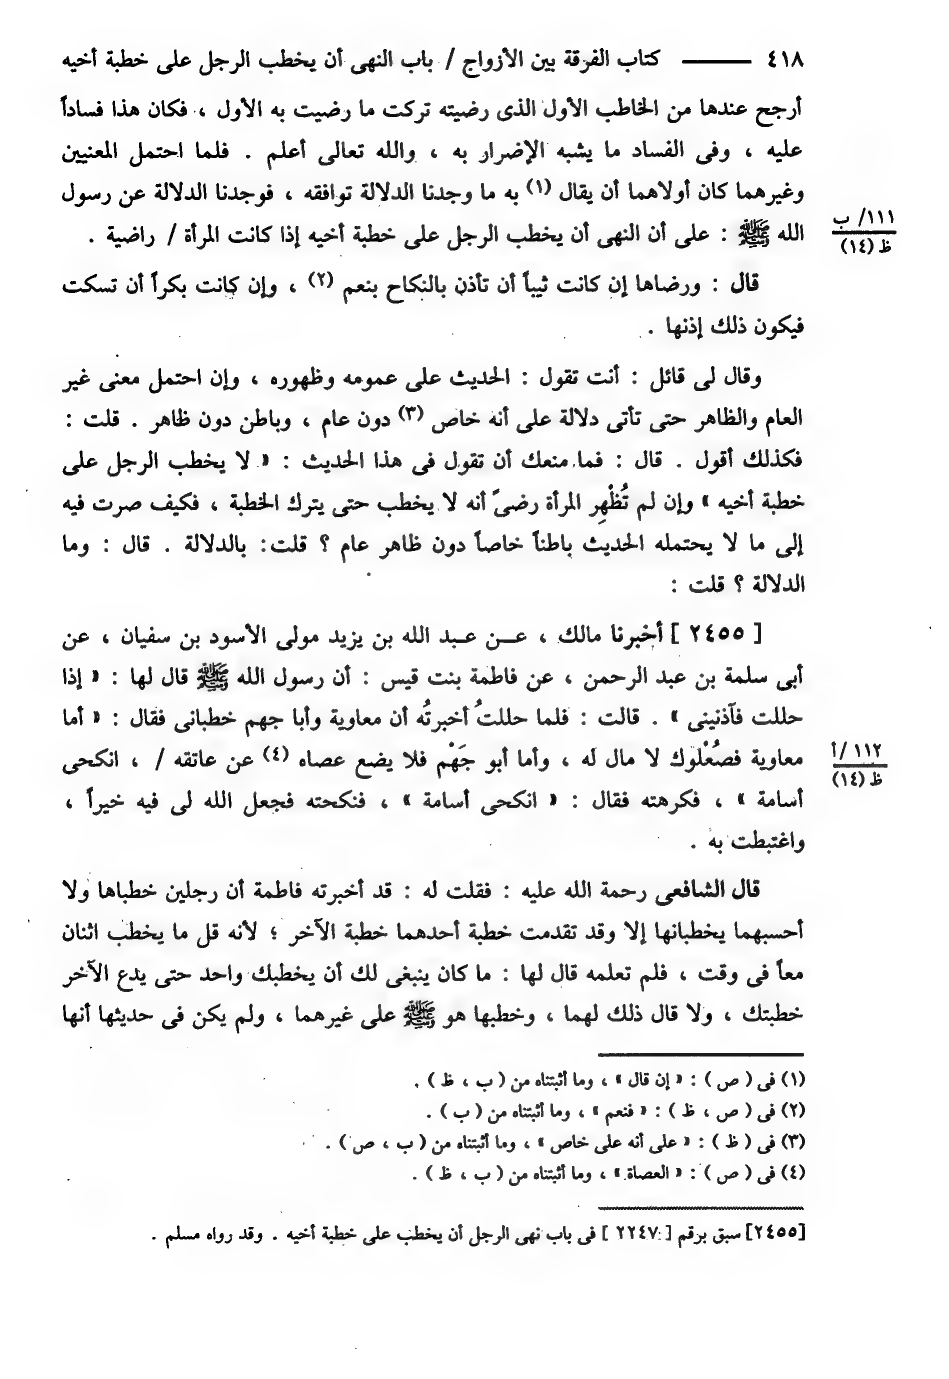 ٤١٨ ـــــــ كتاب الفرقة بين الأزواج / باب النهى أن يخطب الرجل على خطبة أخيه
أرجح عندها من الخاطب الأول الذى رضيته تركت ما رضيت به الأول ، فكان هذا فساداً
عليه ، وفى الفساد ما يشبه الإضرار به ، والله تعالى أعلم . فلما احتمل المعنيين
وغيرهما كان أولاهما أن يقال (١) به ما وجدنا الدلالة توافقه ، فوجدنا الدلالة عن رسول
الله ﷺ : على أن النهى أن يخطب الرجل على خطبة أخيه إذا كانت المرأة / راضية .
١١١/ ب
ظ (١٤)
قال : ورضاها إن كانت ثيباً أن تأذن بالنكاح بنعم (٢) ، وإن كانت بكراً أن تسكت
فيكون ذلك إذنها .
وقال لى قائل : أنت تقول : الحديث على عمومه وظهوره ، وإن احتمل معنى غير
العام والظاهر حتى تأتى دلالة على أنه خاص (٣) دون عام ، وباطن دون ظاهر . قلت :
فكذلك أقول . قال : فما منعك أن تقول فى هذا الحديث : « لا يخطب الرجل على
خطبة أخيه » وإن لم تُظْهِر المرأة رضىً أنه لا يخطب حتى يترك الخطبة ، فكيف صرت فيه
إلى ما لا يحتمله الحديث باطناً خاصاً دون ظاهر عام ؟ قلت: بالدلالة . قال : وما
الدلالة ؟ قلت :
[ ٢٤٥٥ ] أخبرنا مالك ، عــن عبد الله بن يزيد مولى الأسود بن سفيان ، عن
أبى سلمة بن عبد الرحمن ، عن فاطمة بنت قيس : أن رسول الله ﷺ قال لها : « إذا
حللت فآذنينى » . قالت : فلما حللتُ أخبرتُه أن معاوية وأبا جهم خطبانى فقال : « أما
معاوية فصُعْلوك لا مال له ، وأما أبو جَهْم فلا يضع عصاه (٤) عن عاتقه / ، انكحى
١١٢ /أ
ظ (١٤)
أسامة » ، فكرهته فقال : « انكحى أسامة » ، فنكحته فجعل الله لى فيه خيراً ،
واغتبطت به .
قال الشافعى رحمة الله عليه : فقلت له : قد أخبرته فاطمة أن رجلين خطباها ولا
أحسبهما يخطبانها إلا وقد تقدمت خطبة أحدهما خطبة الآخر ؛ لأنه قل ما يخطب اثنان
معاً فى وقت ، فلم تعلمه قال لها : ما كان ينبغى لك أن يخطبك واحد حتى يدع الآخر
خطبتك ، ولا قال ذلك لهما ، وخطبها هو ﷺ على غيرهما ، ولم يكن فى حديثها أنها
(١) فى ( ص ) : « إن قال » ، وما أثبتناه من ( ب ، ظ ) .
(٢) فى ( ص ، ظ ) : « فنعم » ، وما أثبتناه من ( ب ) .
(٣) فى ( ظ ) : « على أنه على خاص » ، وما أثبتناه من ( ب ، ص ) .
(٤) فى ( ص ) : « العصاة » ، وما أثبتناه من ( ب ، ظ ) .
[٢٤٥٥] سبق برقم [ ٢٢٤٧ ] فى باب نهى الرجل أن يخطب على خطبة أخيه . وقد رواه مسلم .